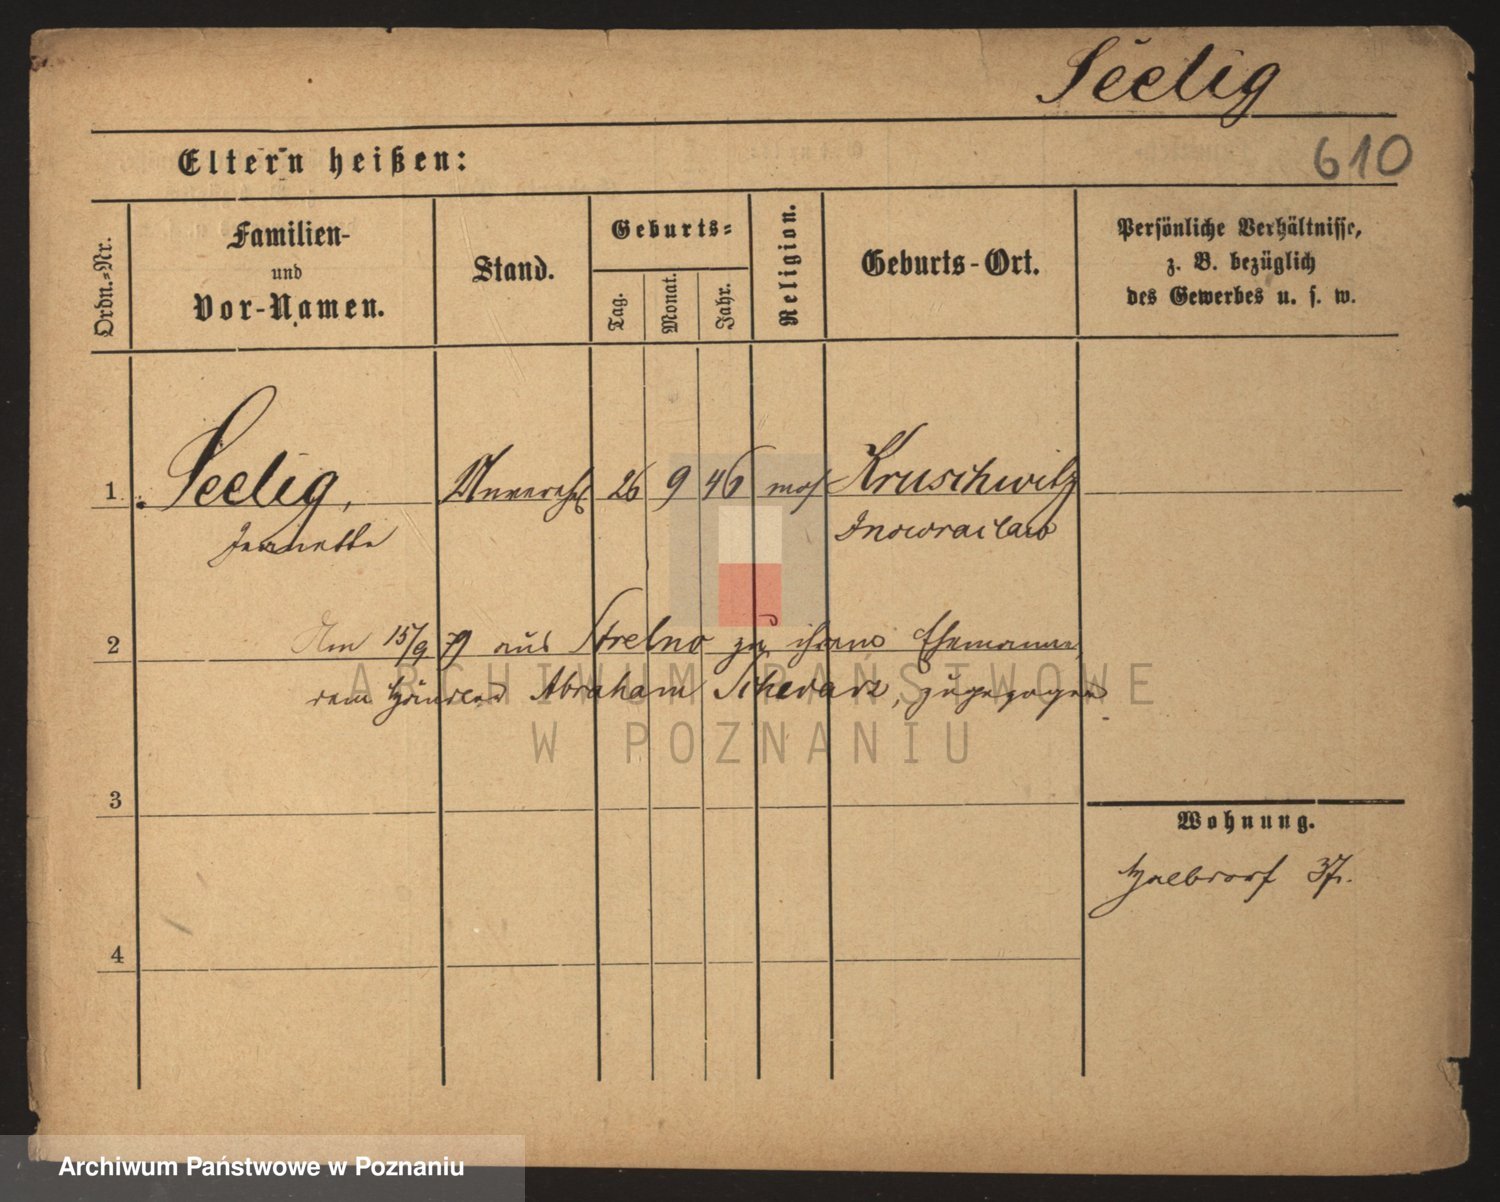 Seelig
610
Eltern heißen:
Ordn.-Nr.
Familien- und Vor-Namen.
Stand.
Geburts-
Tag.
Monat.
Jahr.
Religion.
Geburts-Ort.
Persönliche Verhältnisse,
z. B. bezüglich
des Gewerbes u. s. w.
1 Seelig, Unverehel 26 9 46 mos Kruschwitz
Jeannette Inowraclaw
2 Am 15/9 79 aus Strelno zu ihrem Ehemanne,
dem Händler Abraham Schwarz, zugezogen
ARCHIWUM PAŃSTWOWE
W POZNANIU
3
Wohnung.
Halbdorf 37.
4
Archiwum Państwowe w Poznaniu